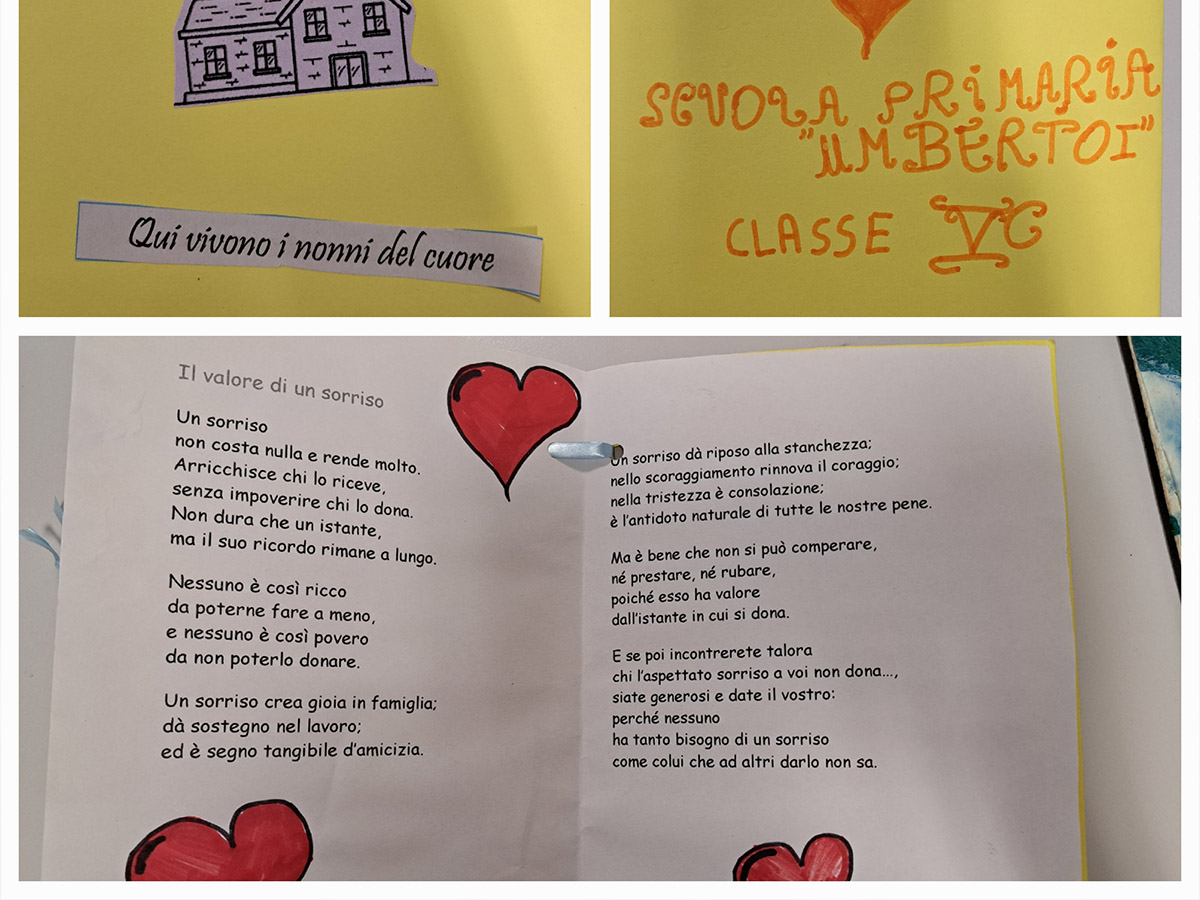 Qui vivono i nonni del cuore
SCUOLA PRIMARIA
"UMBERTO I"
CLASSE VC
Il valore di un sorriso
Un sorriso
non costa nulla e rende molto.
Arricchisce chi lo riceve,
senza impoverire chi lo dona.
Non dura che un istante,
ma il suo ricordo rimane a lungo.
Nessuno è così ricco
da poterne fare a meno,
e nessuno è così povero
da non poterlo donare.
Un sorriso crea gioia in famiglia;
dà sostegno nel lavoro;
ed è segno tangibile d'amicizia.
Un sorriso dà riposo alla stanchezza;
nello scoraggiamento rinnova il coraggio;
nella tristezza è consolazione;
è l'antidoto naturale di tutte le nostre pene.
Ma è bene che non si può comperare,
né prestare, né rubare,
poiché esso ha valore
dall'istante in cui si dona.
E se poi incontrerete talora
chi l'aspettato sorriso a voi non dona...,
siate generosi e date il vostro:
perché nessuno
ha tanto bisogno di un sorriso
come colui che ad altri darlo non sa.